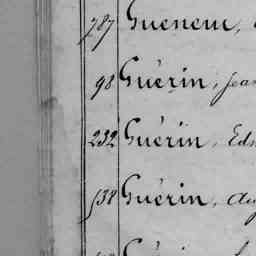 787 Gueneur,
98 Guérin, Jean
232 Guérin, Edm
138 Guérin, Aug